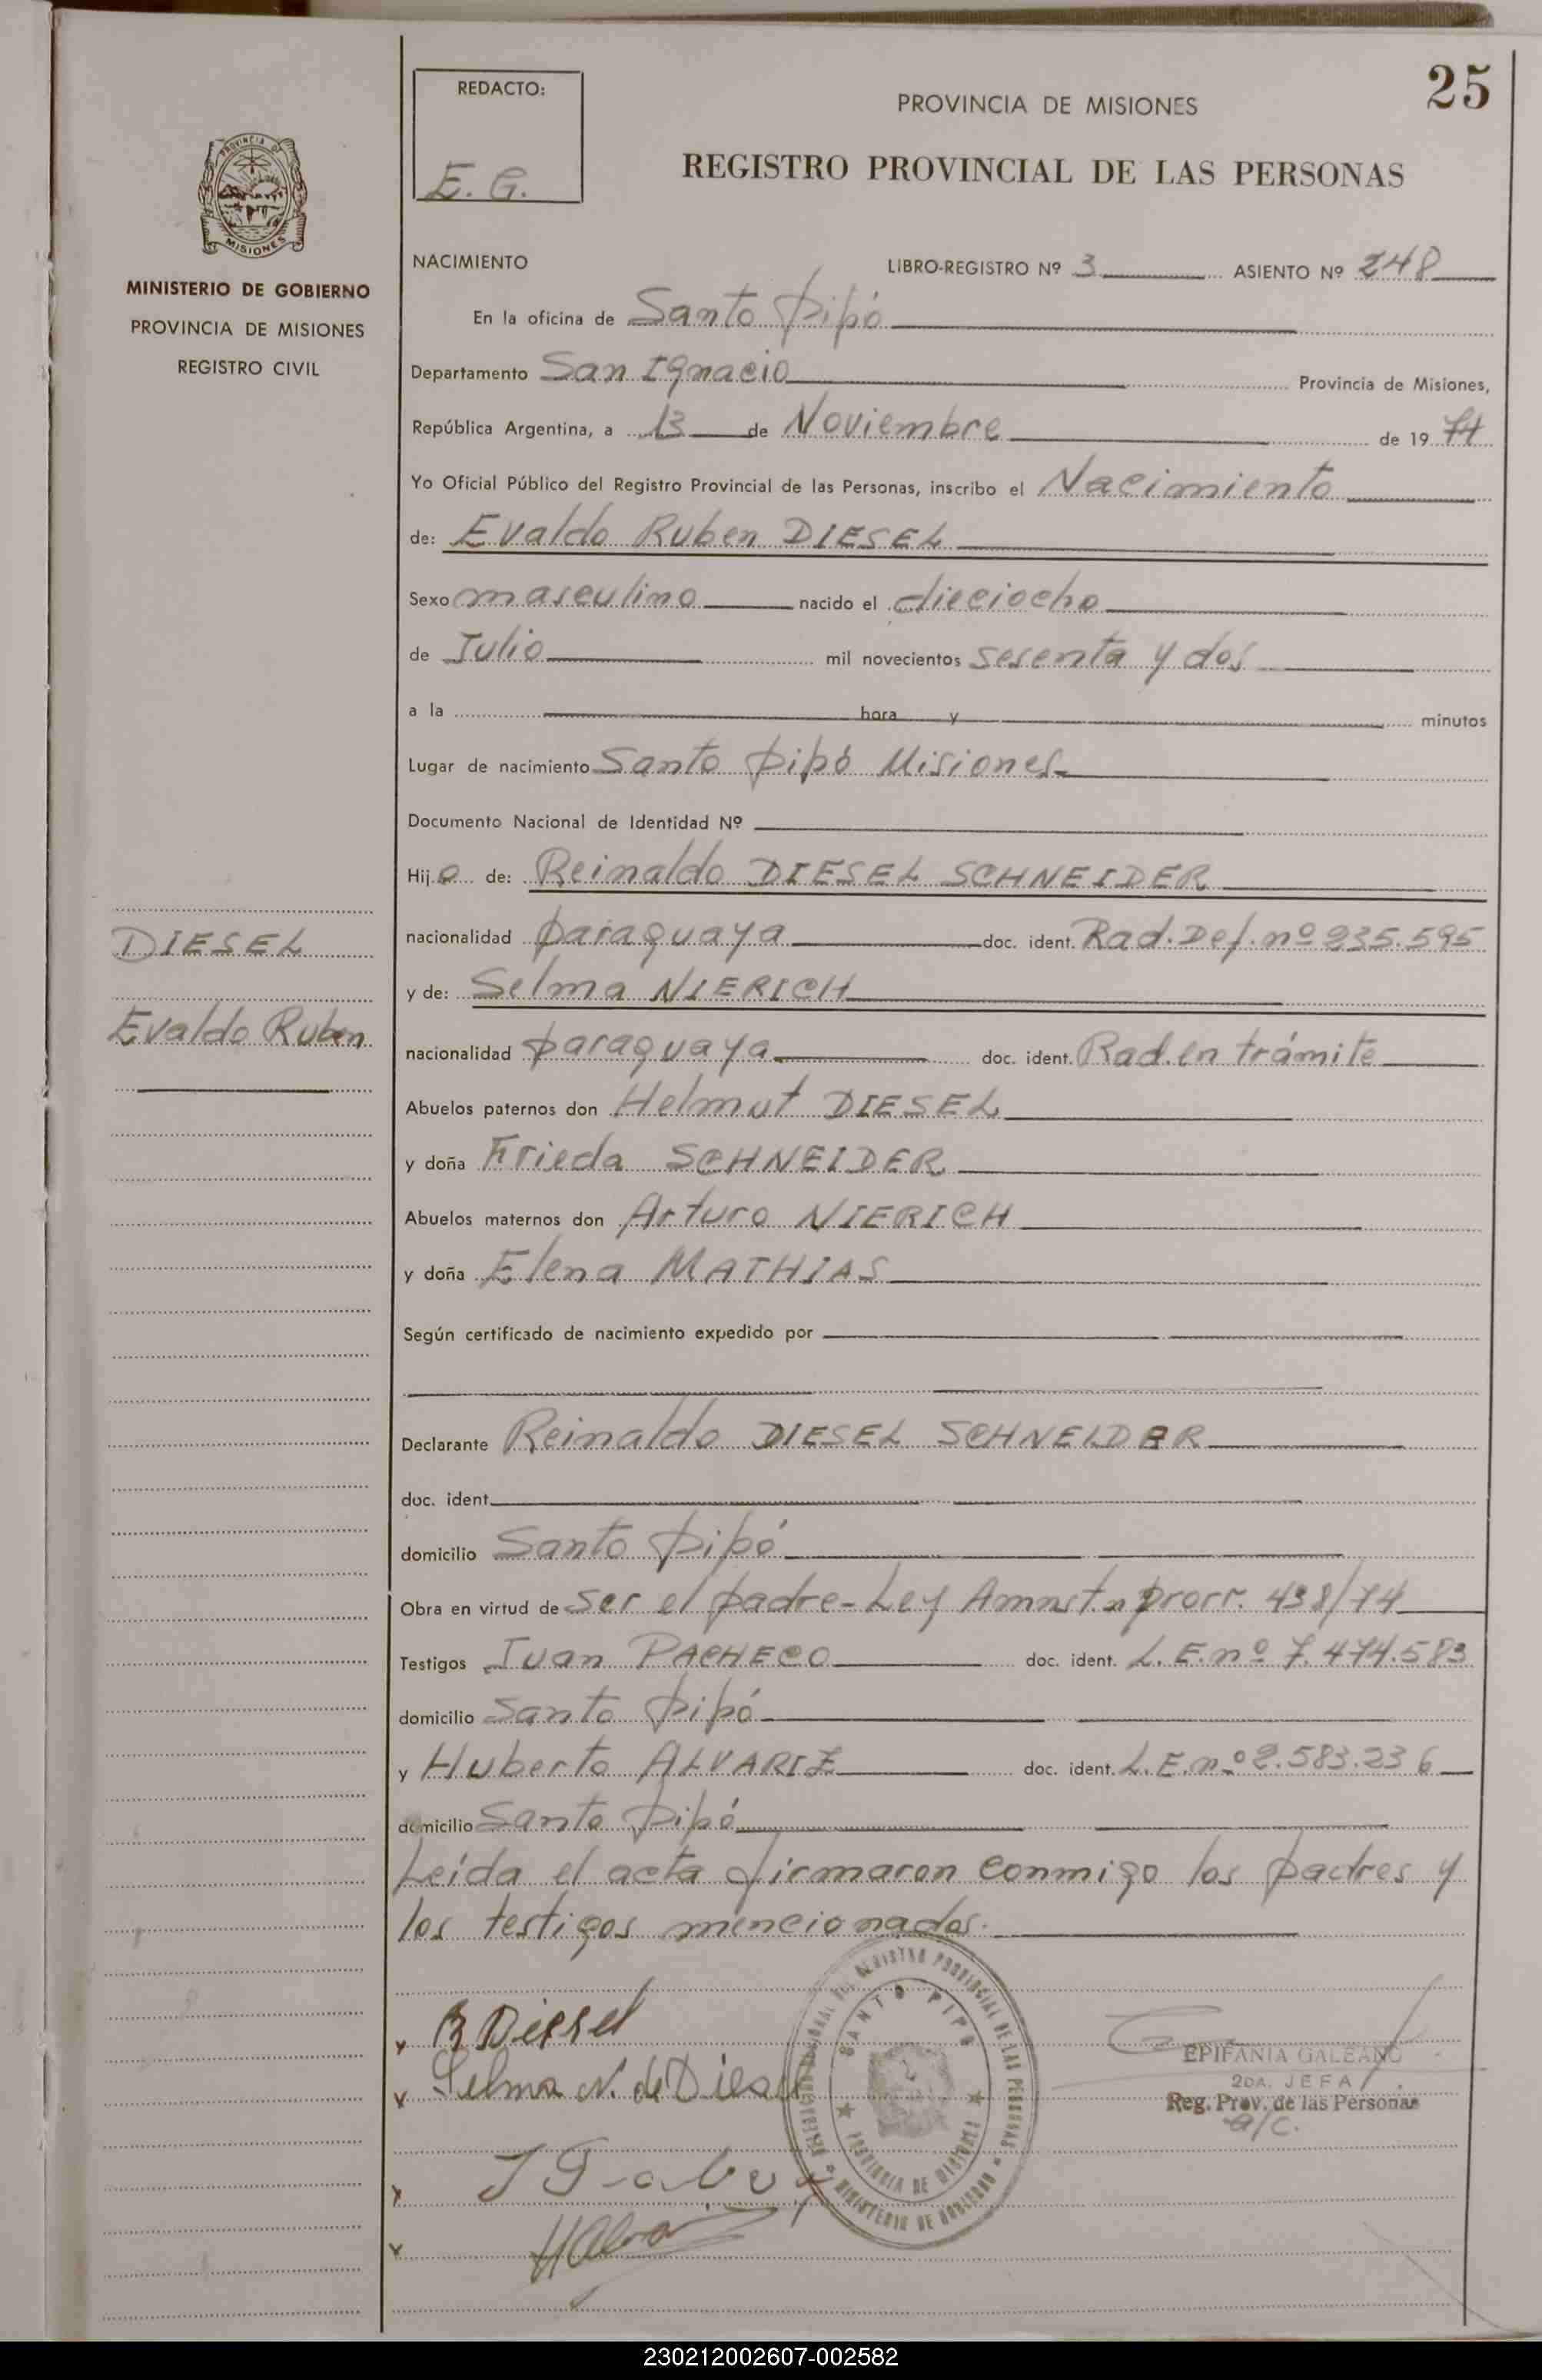 25
REDACTO:
E. G.
PROVINCIA DE MISIONES
REGISTRO PROVINCIAL DE LAS PERSONAS
PROVINCIA DE
MISIONES
MINISTERIO DE GOBIERNO
PROVINCIA DE MISIONES
REGISTRO CIVIL
NACIMIENTO
LIBRO-REGISTRO Nº 3 ASIENTO Nº 248
En la oficina de Santo Pipó
Departamento San Ignacio Provincia de Misiones,
República Argentina, a 13 de Noviembre de 1974
Yo Oficial Público del Registro Provincial de las Personas, inscribo el Nacimiento
de: Evaldo Ruben DIESEL
Sexo masculino nacido el dieciocho
de Julio mil novecientos sesenta y dos
a la hora y minutos
Lugar de nacimiento Santo Pipó Misiones
Documento Nacional de Identidad Nº
Hijo de: Reinaldo DIESEL SCHNEIDER
nacionalidad paraguaya doc. ident. Rad. Def. nº 235.595
y de: Selma NIERICH
nacionalidad paraguaya doc. ident. Rad. en trámite
Abuelos paternos don Helmut DIESEL
y doña Frieda SCHNEIDER
Abuelos maternos don Arturo NIERICH
y doña Elena MATHIAS
Según certificado de nacimiento expedido por
Declarante Reinaldo DIESEL SCHNEIDER
doc. ident.
domicilio Santo Pipó
Obra en virtud de ser el padre - Ley Amnst. prorr. 438/74
Testigos Juan PACHECO doc. ident. L. E. nº 7.474.583
domicilio Santo Pipó
y Huberto ALVAREZ doc. ident. L. E. nº 2.583.236
domicilio Santo Pipó
Leída el acta firmaron conmigo los padres y
los testigos mencionados.
DIESEL
Evaldo Ruben
R Diesel
Selma N. de Diesel
SANTO PIPO
PROVINCIA DE MISIONES
MINISTERIO DE GOBIERNO
EPIFANIA GALEANO
2DA. JEFA
Reg. Prov. de las Personas
a/c.
230212002607-002582